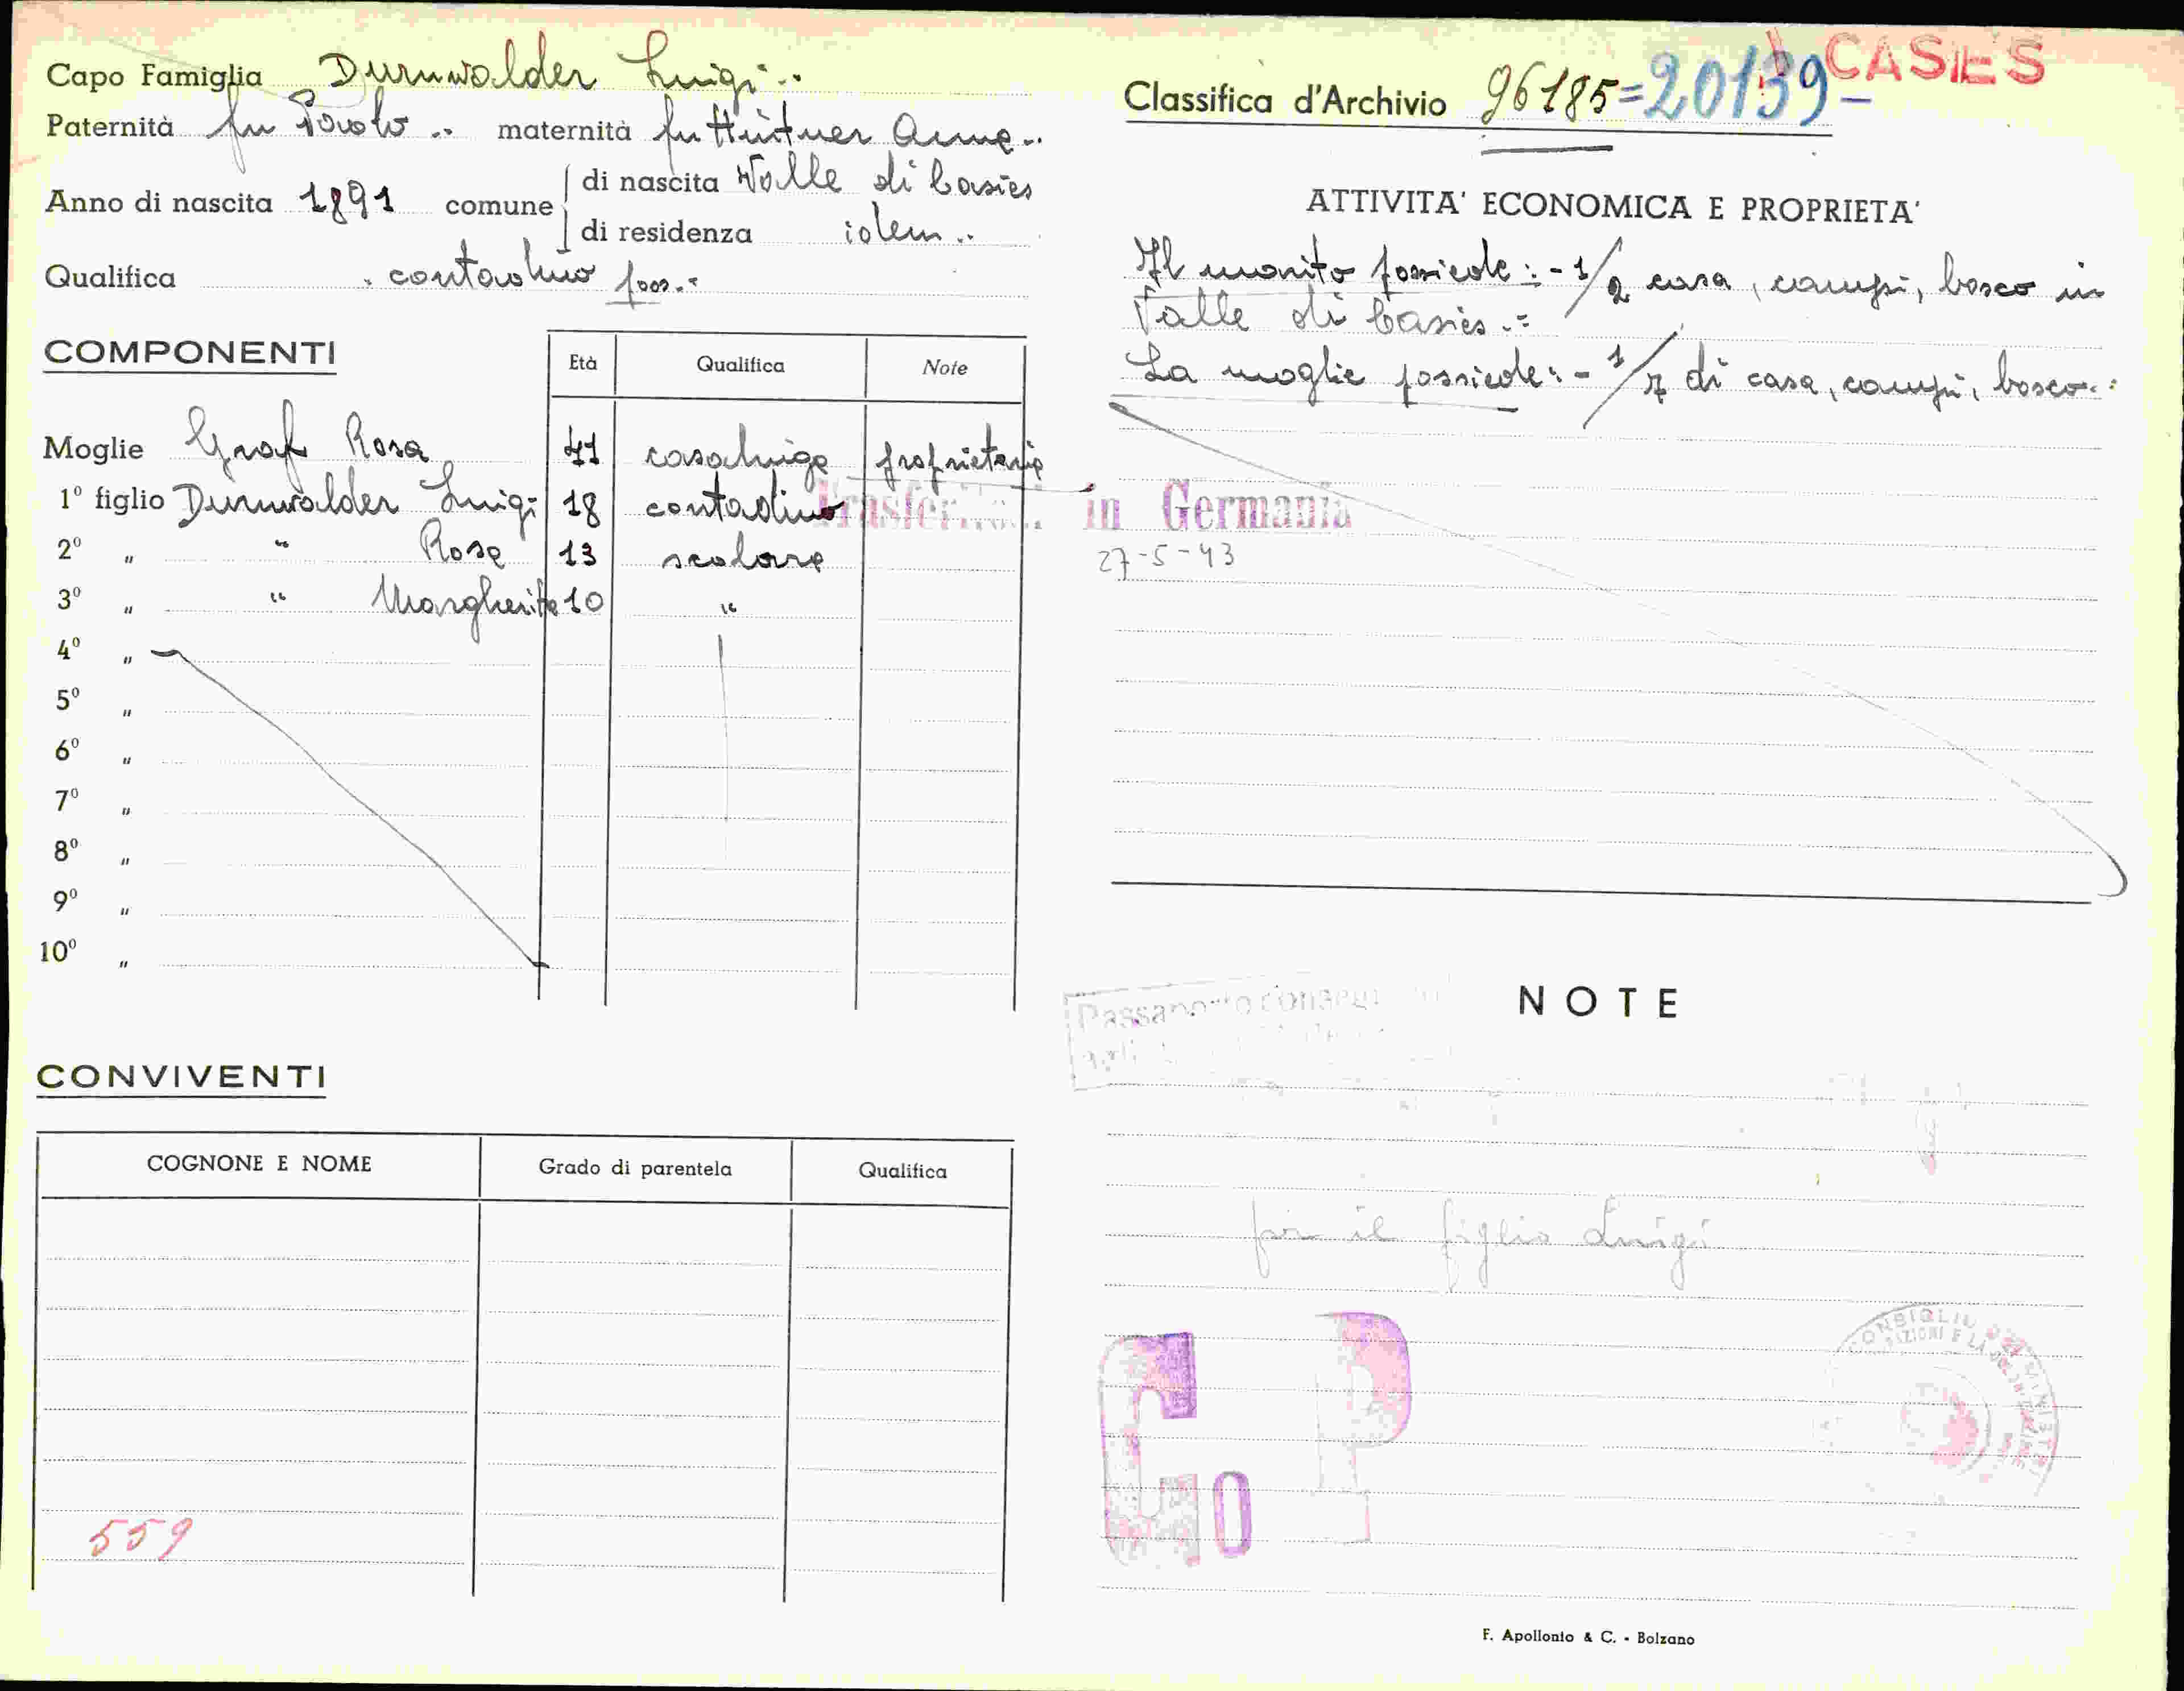 Capo Famiglia Durnwalder Luigi..
Paternità fu Paolo .. maternità fu Hintner Anna..
Anno di nascita 1891 comune di nascita Valle di Casies
di residenza idem..
Qualifica contadino poss.
COMPONENTI
Età Qualifica Note
Moglie Graf Rosa 41 casalinga proprietaria
1º figlio Durnwalder Luigi 18 contadino
2º " " Rosa 13 scolara
3º " " Margherita 10 "
4º "
5º "
6º "
7º "
8º "
9º "
10º "
CONVIVENTI
COGNONE E NOME Grado di parentela Qualifica
559
CASIES
Classifica d'Archivio 96185=20139-
ATTIVITA' ECONOMICA E PROPRIETA'
Il marito possiede:-1/2 casa, campi, bosco in
Valle di Casies.=
La moglie possiede:-1/7 di casa, campi, bosco..
in Germania
27-5-43
NOTE
Passaporto
per il figlio Luigi
G P
0
F. Apollonio & C. - Bolzano